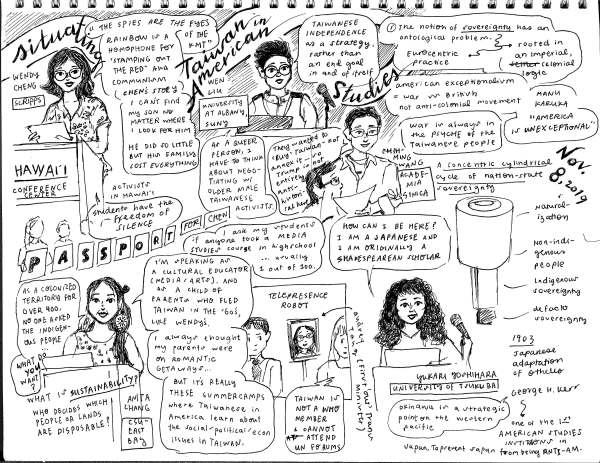 Situating
Taiwan in
American
Studies
Nov.
8, 2019
WENDY
CHENG
SCRIPPS
"THE SPIES ARE THE EYES
OF THE
KMT"
RAINBOW IS A
HOMOPHONE FOR
'STAMPING OUT
THE RED' AND
COMMUNISM
(CHEN'S STORY)
I CAN'T FIND
MY SON NO
MATTER WHERE
I LOOK FOR HIM
HE DID SO LITTLE
BUT HIS FAMILY
LOST EVERYTHING
HAWAI'I
CONFERENCE
CENTER
ACTIVISTS
IN HAWAI'I
students have the
freedom of
SILENCE
PASSPORT FOR CHEN
WEN
LIU
UNIVERSITY
AT ALBANY,
SUNY
TAIWANESE
INDEPENDENCE
AS A STRATEGY,
rather than
an end goal
in and of itself
AS A QUEER
PERSON, I
HAVE TO THINK
ABOUT NEGO-
TIATING W/
OLDER MALE
TAIWANESE
ACTIVISTS.
They wanted to
"BUY" TAIWAN - not
annex it -
Trump
entirely
WANG
ACADE-
MIA
SINICA
① The notion of sovereignty has an
ontological problem.
Eurocentric
practice
rooted in
an imperial,
colonial
logic
american exceptionalism
= war w/ British
not anti-colonial movement
MANU
KARUKA
"AMERICA
IS UNEXCEPTIONAL"
War is always in
the PSYCHE of the
Taiwanese people
A concentric cylindrical
cycle of nation-state
sovereignty
natural-
ization
Non-indi-
genous
people
Indigenous
sovereignty
defacto
sovereignty
I ask my students
if anyone took a MEDIA
STUDIES course in highschool
... usually
1 out of 100.
HOW CAN I BE HERE?
I AM A JAPANESE AND
I AM ORIGINALLY A
SHAKESPEAREAN SCHOLAR
AS A COLONIZED
TERRITORY FOR
OVER 400,
NO ONE ASKED
THE INDIGEN-
OUS PEOPLE
WHAT DO
YOU
WANT?
WHAT IS SUSTAINABILITY?
WHO DECIDES WHICH
PEOPLE OR LANDS
ARE DISPOSABLE?
ANITA
CHANG
CSU-
EAST
BAY
I'M SPEAKING AS
A CULTURAL EDUCATOR
(MEDIA/ARTS), AND
AS A CHILD OF
PARENTS WHO FLED
TAIWAN IN THE '60s,
LIKE WENDY'S.
I always thought
my parents were
on ROMANTIC
GETAWAYS...
BUT IT'S REALLY
THESE SUMMERCAMPS
where Taiwanese in
America learn about
the social-political-econ
issues IN TAIWAN.
TELEPRESENCE
ROBOT
TAIWAN IS
NOT A WHO
MEMBER
& CANNOT
ATTEND
UN FORUMS
YUKARI YOSHIHARA
UNIVERSITY OF TSUKUBA
OKINAWA IS A strategic
point on the western
pacific
1903
Japanese
adaptation
of Othello
George H. Kerr
one of the 1st
AMERICAN STUDIES
INSTITUTIONS in
Japan, to prevent Japan from being ANTI-AM.